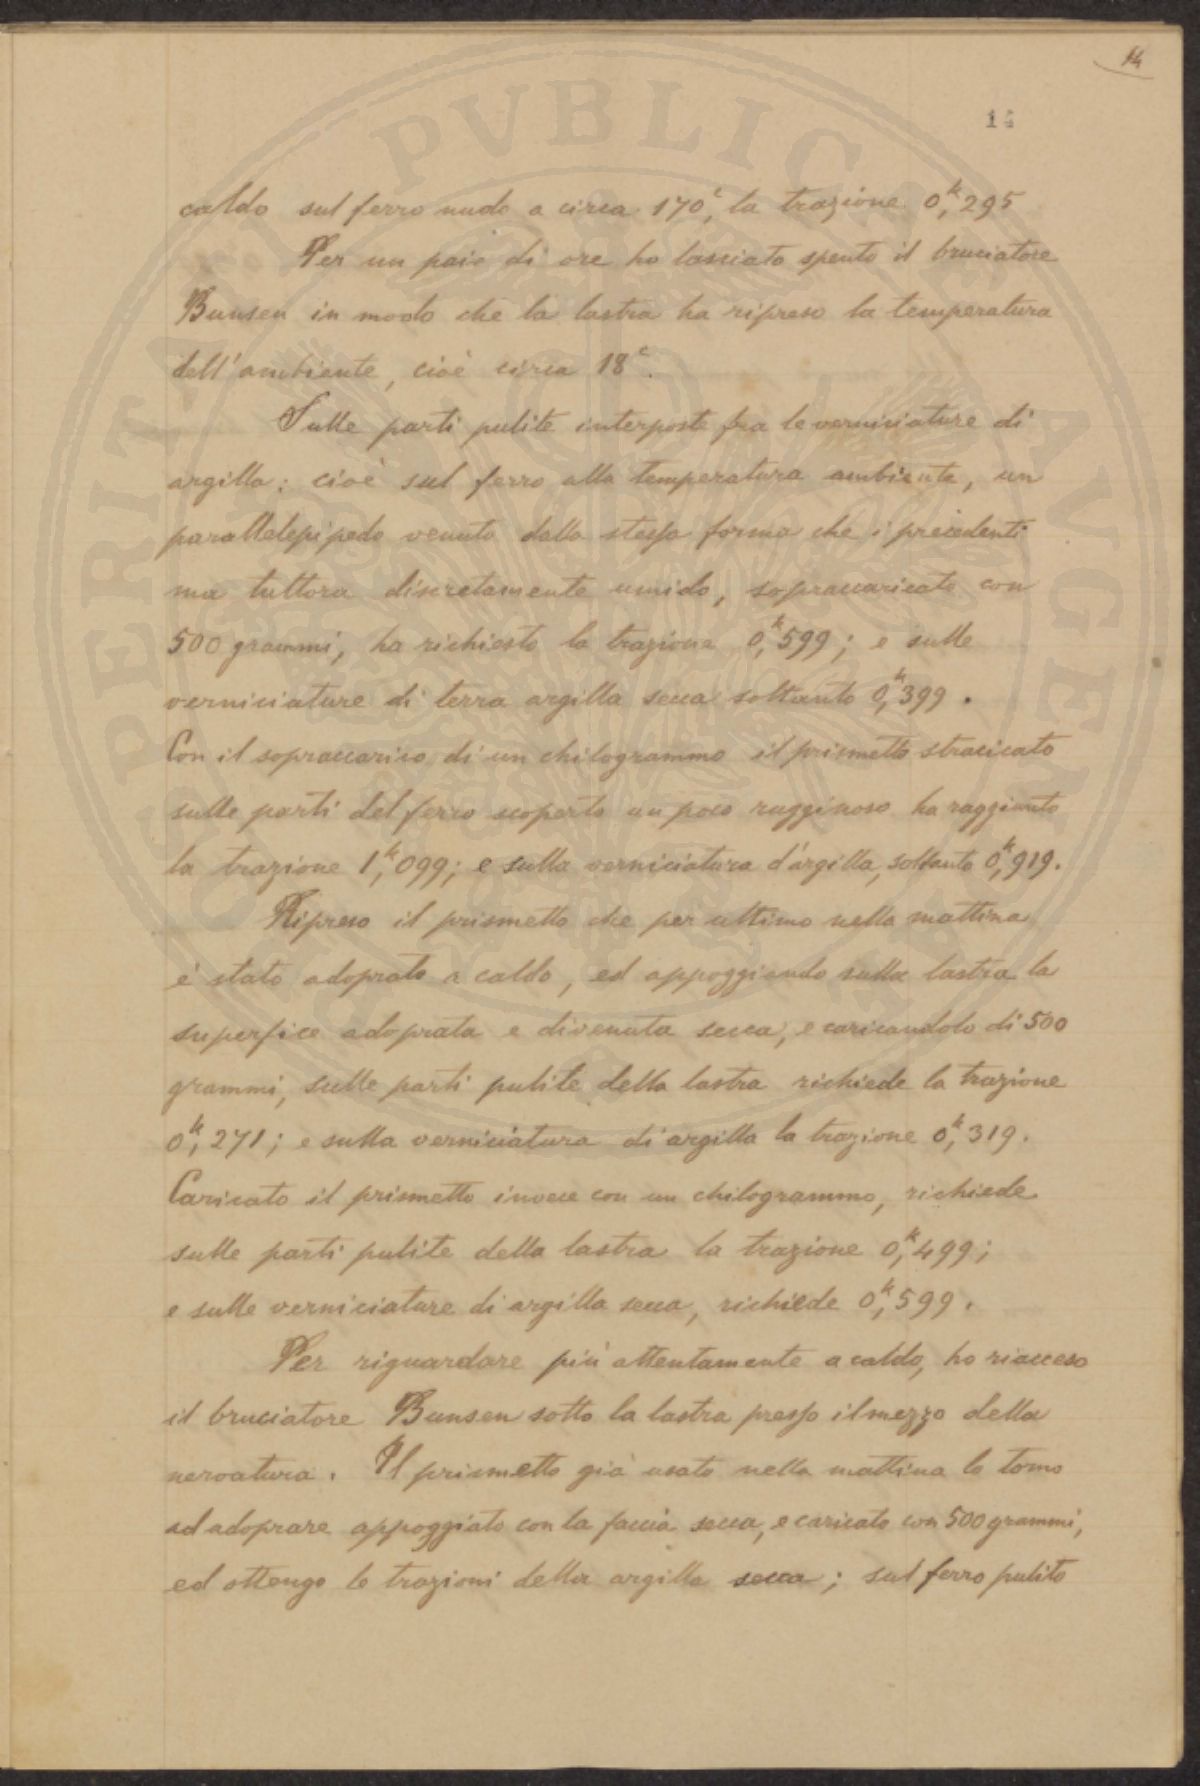 14
14
caldo sul ferro nudo a circa 170°, la trazione 0,ᵏ295
Per un paio di ore ho lasciato spento il bruciatore
Bunsen in modo che la lastra ha ripreso la temperatura
dell'ambiente, cioè circa 18ᶜ.
Sulle parti pulite interposte fra le verniciature di
argilla: cioè sul ferro alla temperatura ambiente, un
parallelepipedo venuto dalla stessa forma che i precedenti
ma tuttora discretamente umido, sopraccaricato con
500 grammi, ha richiesto la trazione 0,ᵏ599; e sulle
verniciature di terra argilla secca soltanto 0,ᵏ399.
Con il sopraccarico di un chilogrammo il prismetto strascicato
sulle parti del ferro scoperto un poco rugginoso ha raggiunto
la trazione 1,ᵏ099; e sulla verniciatura d'argilla, soltanto 0,ᵏ919.
Ripreso il prismetto che per ultimo nella mattina
è stato adoprato a caldo, ed appoggiando sulla lastra la
superfice adoprata e divenuta secca, e caricandolo di 500
grammi, sulle parti pulite della lastra richiede la trazione
0,ᵏ271; e sulla verniciatura di argilla la trazione 0,ᵏ319.
Caricato il prismetto invece con un chilogrammo, richiede
sulle parti pulite della lastra la trazione 0,ᵏ499;
e sulle verniciature di argilla secca, richiede 0,ᵏ599.
Per riguardare più attentamente a caldo, ho riacceso
il bruciatore Bunsen sotto la lastra presso il mezzo della
nervatura. Il prismetto già usato nella mattina lo torno
ad adoprare appoggiato con la faccia secca, e caricato con 500 grammi,
ed ottengo le trazioni della argilla secca; sul ferro pulito